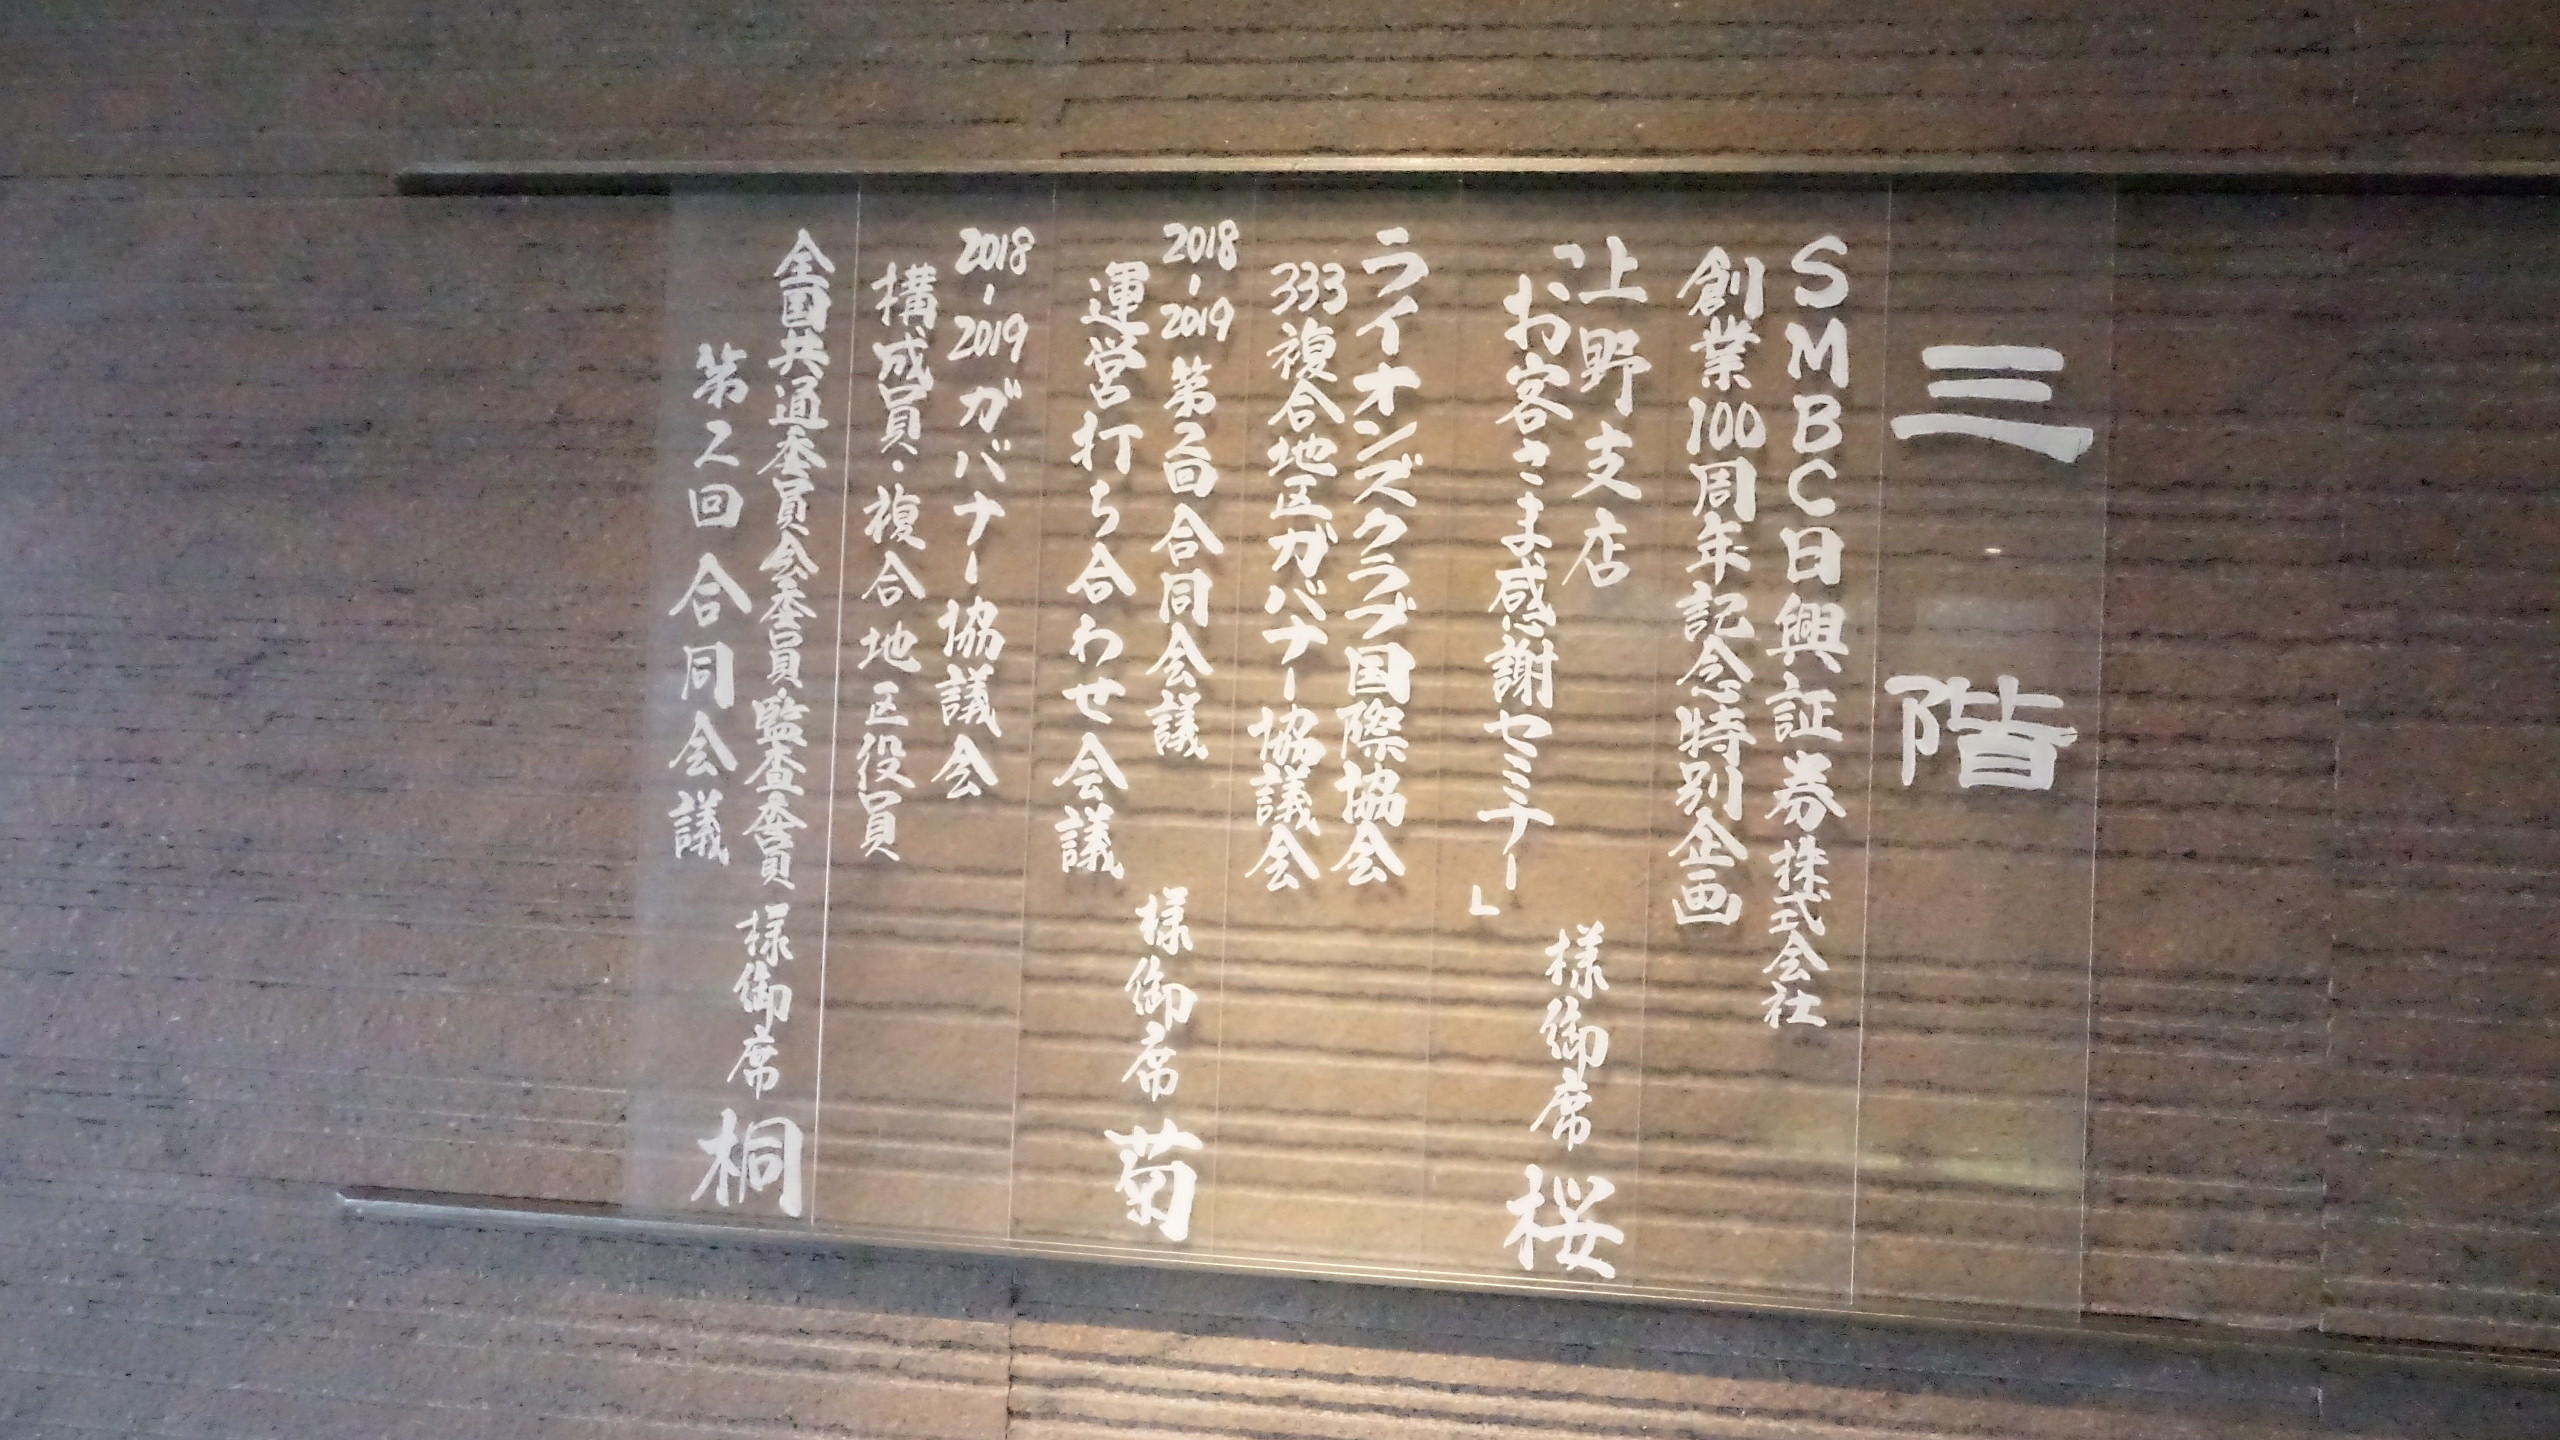 三階
SMBC日興証券株式会社
創業100周年記念特別企画
上野支店
「お客さま感謝セミナー」
様御席
桜
ライオンズクラブ国際協会
333複合地区ガバナー協議会
2018-2019第2回合同会議
運営打ち合わせ会議
様御席
菊
2018-2019ガバナー協議会
構成員・複合地区役員
全国共通委員会委員・監査委員
第2回合同会議
様御席
桐